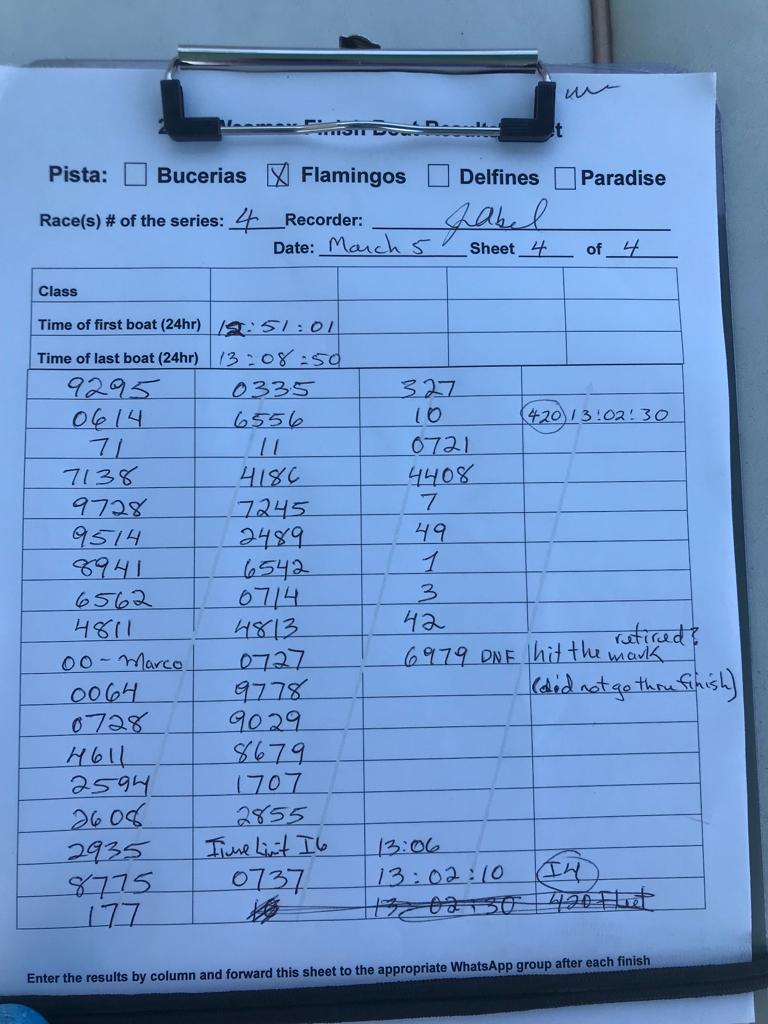 Finish Boat Results
Pista: Bucerias X Flamingos Delfines Paradise
Race(s) # of the series: 4 Recorder:
Date: March 5 Sheet 4 of 4
Class
Time of first boat (24hr) 12:51:01
Time of last boat (24hr) 13:08:50
9295 0335 327
0614 6556 10 420 13:02:30
71 11 0721
7138 4186 4408
9728 7245 7
9514 2489 49
8941 6542 1
6562 0714 3
4811 4813 42
00 - Marco 0727 6979 DNF hit the mark retired?
0064 9778 (did not go thru finish)
0728 9029
4611 8679
2594 1707
2608 2855
2935 Time Limit I6 13:06
8775 0737 13:02:10 I4
177 13:02:30 420 Fleet
Enter the results by column and forward this sheet to the appropriate WhatsApp group after each finish